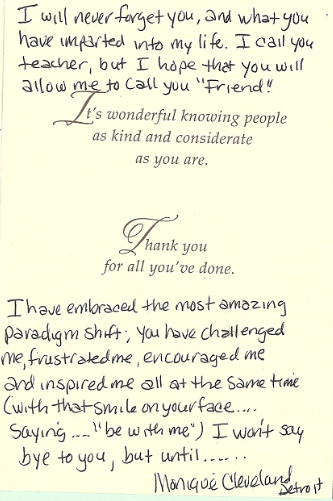 I will never forget you, and what you
have imparted into my life. I call you
teacher, but I hope that you will
allow me to call you "Friend!"
It's wonderful knowing people
as kind and considerate
as you are.
Thank you
for all you've done.
I have embraced the most amazing
paradigm shift; you have challenged
me, frustrated me, encouraged me
and inspired me all at the same time
(with that smile on your face....
Saying.... "be with me") I won't say
bye to you, but until......
Monique Cleveland
Detroit